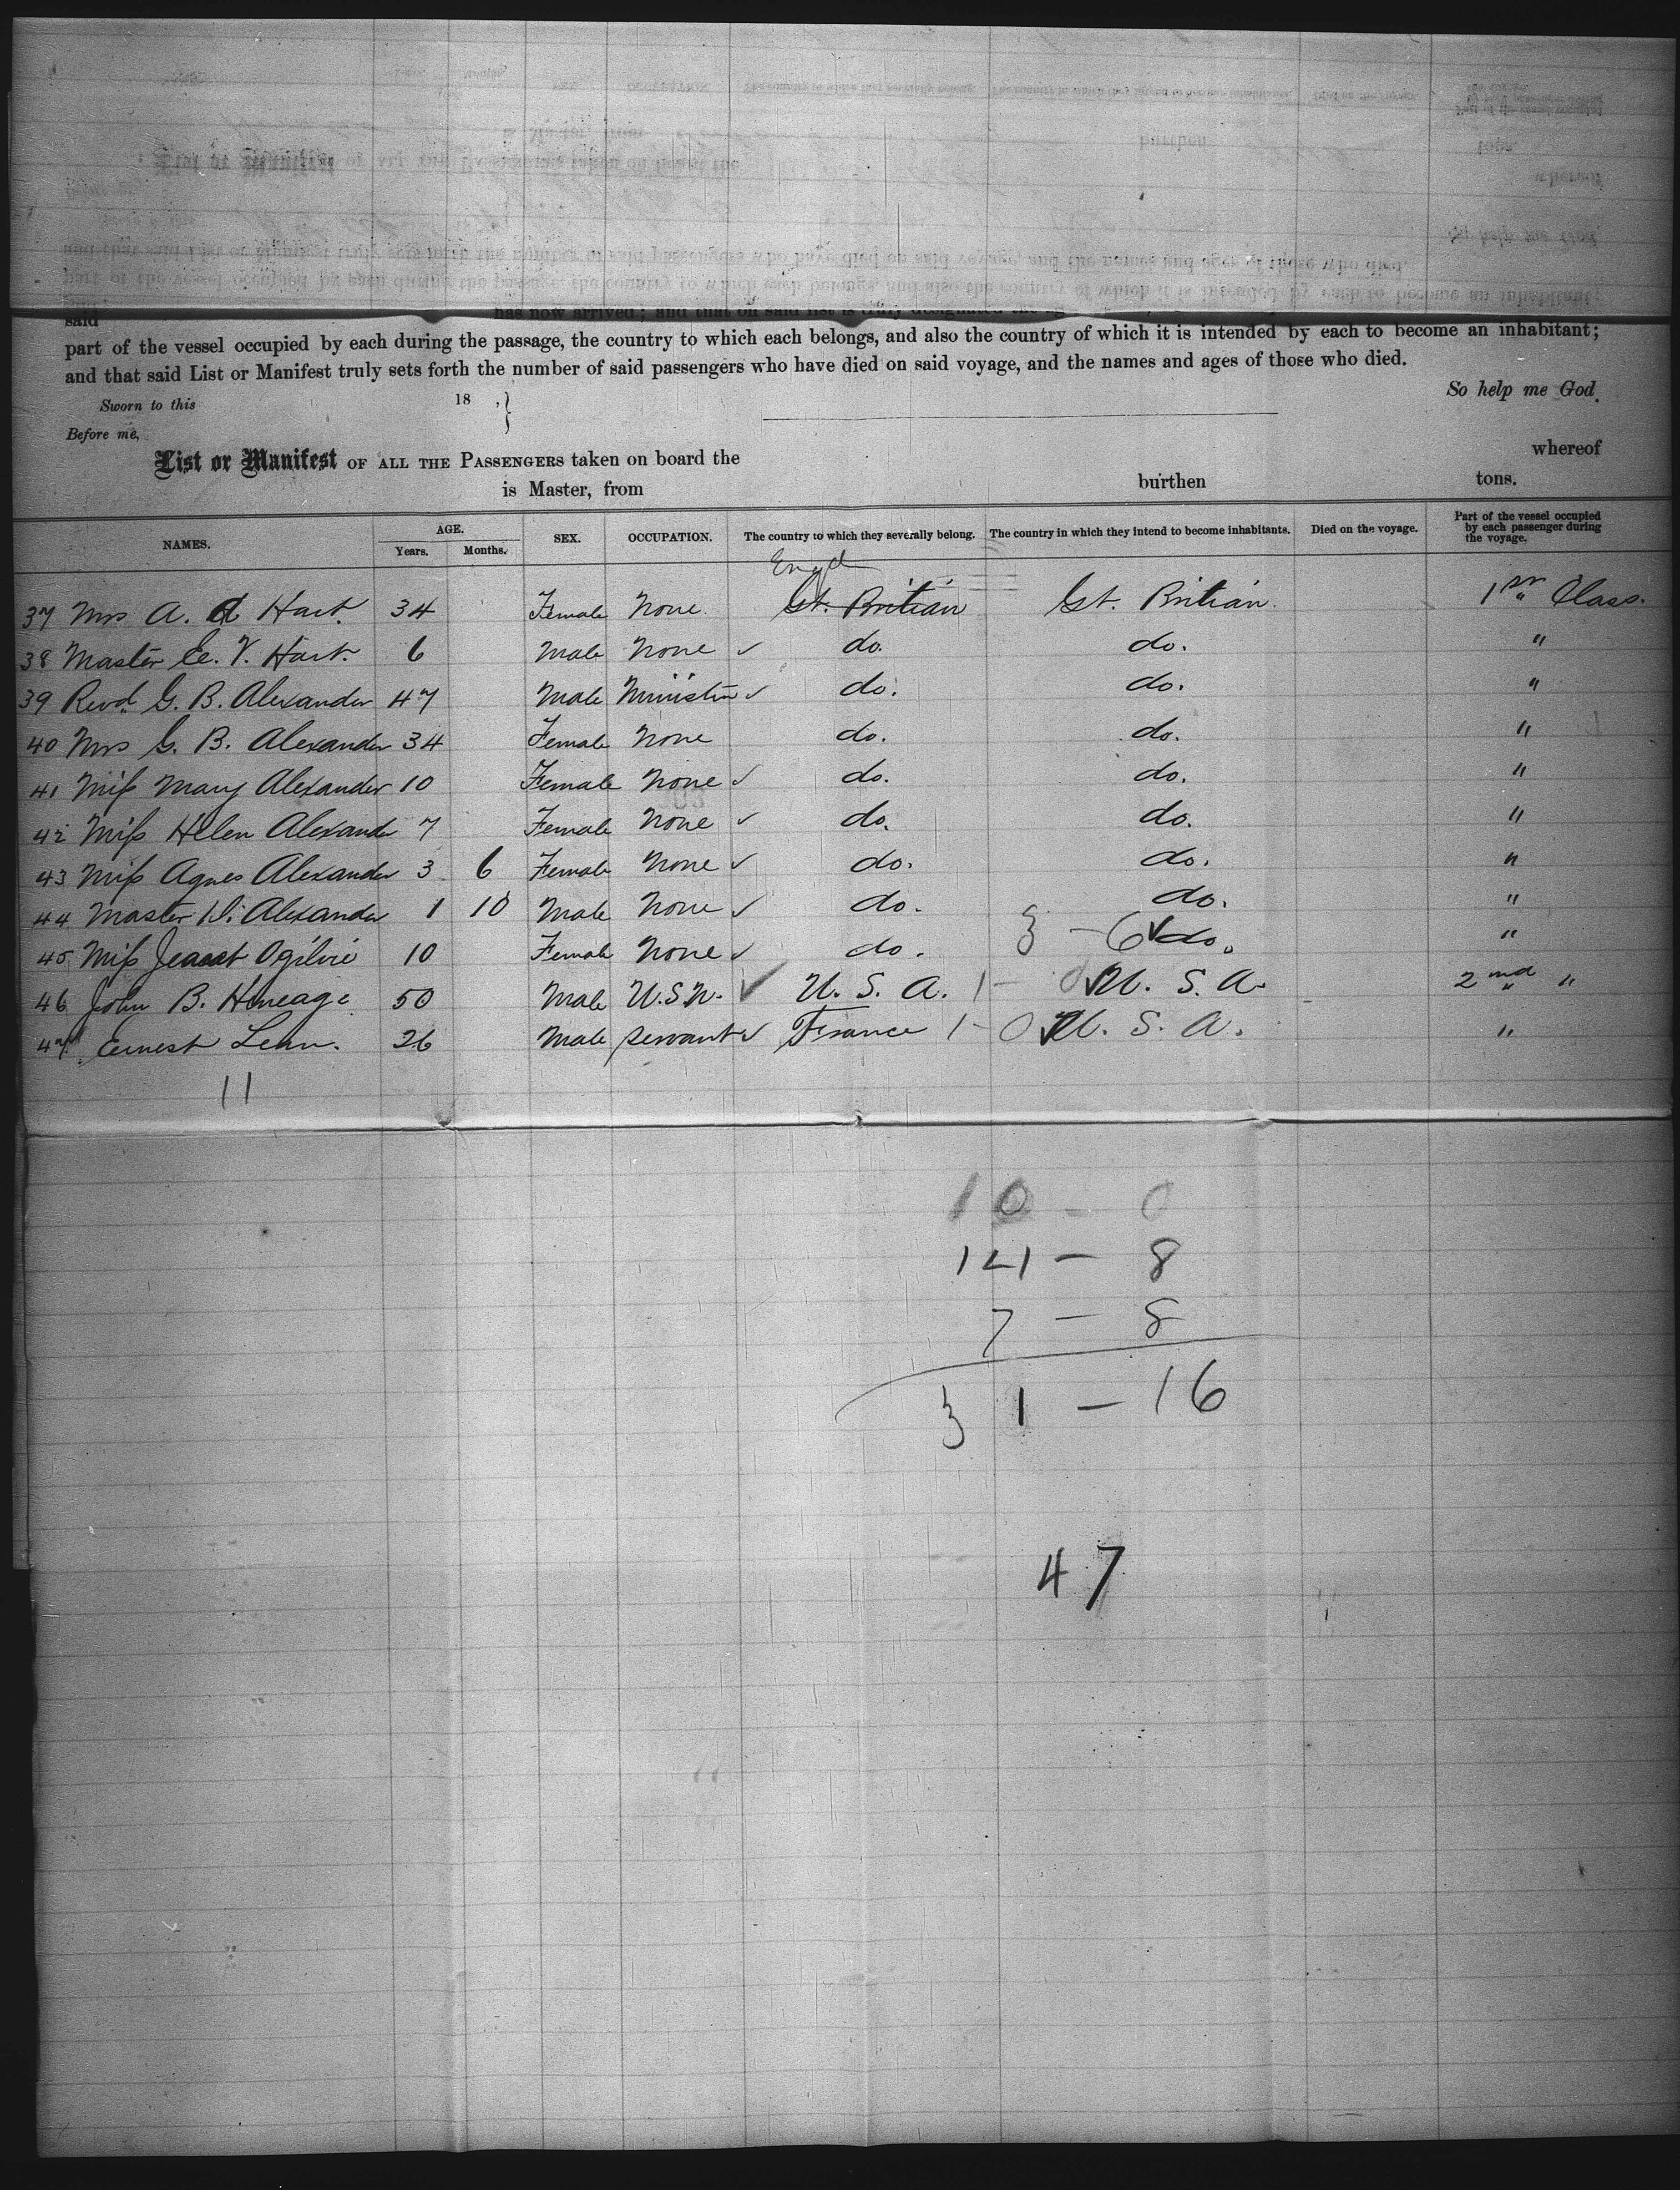 said has now arrived; and that on said list is truly designated the
part of the vessel occupied by each during the passage, the country to which each belongs, and also the country of which it is intended by each to become an inhabitant;
and that said List or Manifest truly sets forth the number of said passengers who have died on said voyage, and the names and ages of those who died.
So help me God.
Sworn to this 18 ,}
Before me,
List or Manifest OF ALL THE PASSENGERS taken on board the whereof
is Master, from burthen tons.
NAMES. AGE. Years. Months. SEX. OCCUPATION. The country to which they severally belong. The country in which they intend to become inhabitants. Died on the voyage. Part of the vessel occupied by each passenger during the voyage.
Engd
37 Mrs A. Hart. 34 Female None. Gt. Britian Gt. Britian. 1st Class.
38 Master E. V. Hart. 6 Male None ✓ do. do. "
39 Revd. G. B. Alexander 47 Male Minister ✓ do. do. "
40 Mrs G. B. Alexander 34 Female None do. do. "
41 Miss Mary Alexander 10 Female None ✓ do. do. "
42 Miss Helen Alexander 7 Female None ✓ do. do. "
43 Miss Agnes Alexander 3 6 Female None ✓ do. do. "
44 Master Alexander 1 10 Male None ✓ do. do. "
45 Miss Ogilvie 10 Female None ✓ do. 3 - 6 ✓ do. "
46 John B. 50 Male U.S.N. ✓ U. S. A. 1 - 0 ✓ U. S. A. 2nd "
47 Ernest 26 Male Servant ✓ France 1 - 0 ✓ U. S. A. "
11
10 - 0
14 - 8
7 - 8
31 - 16
47